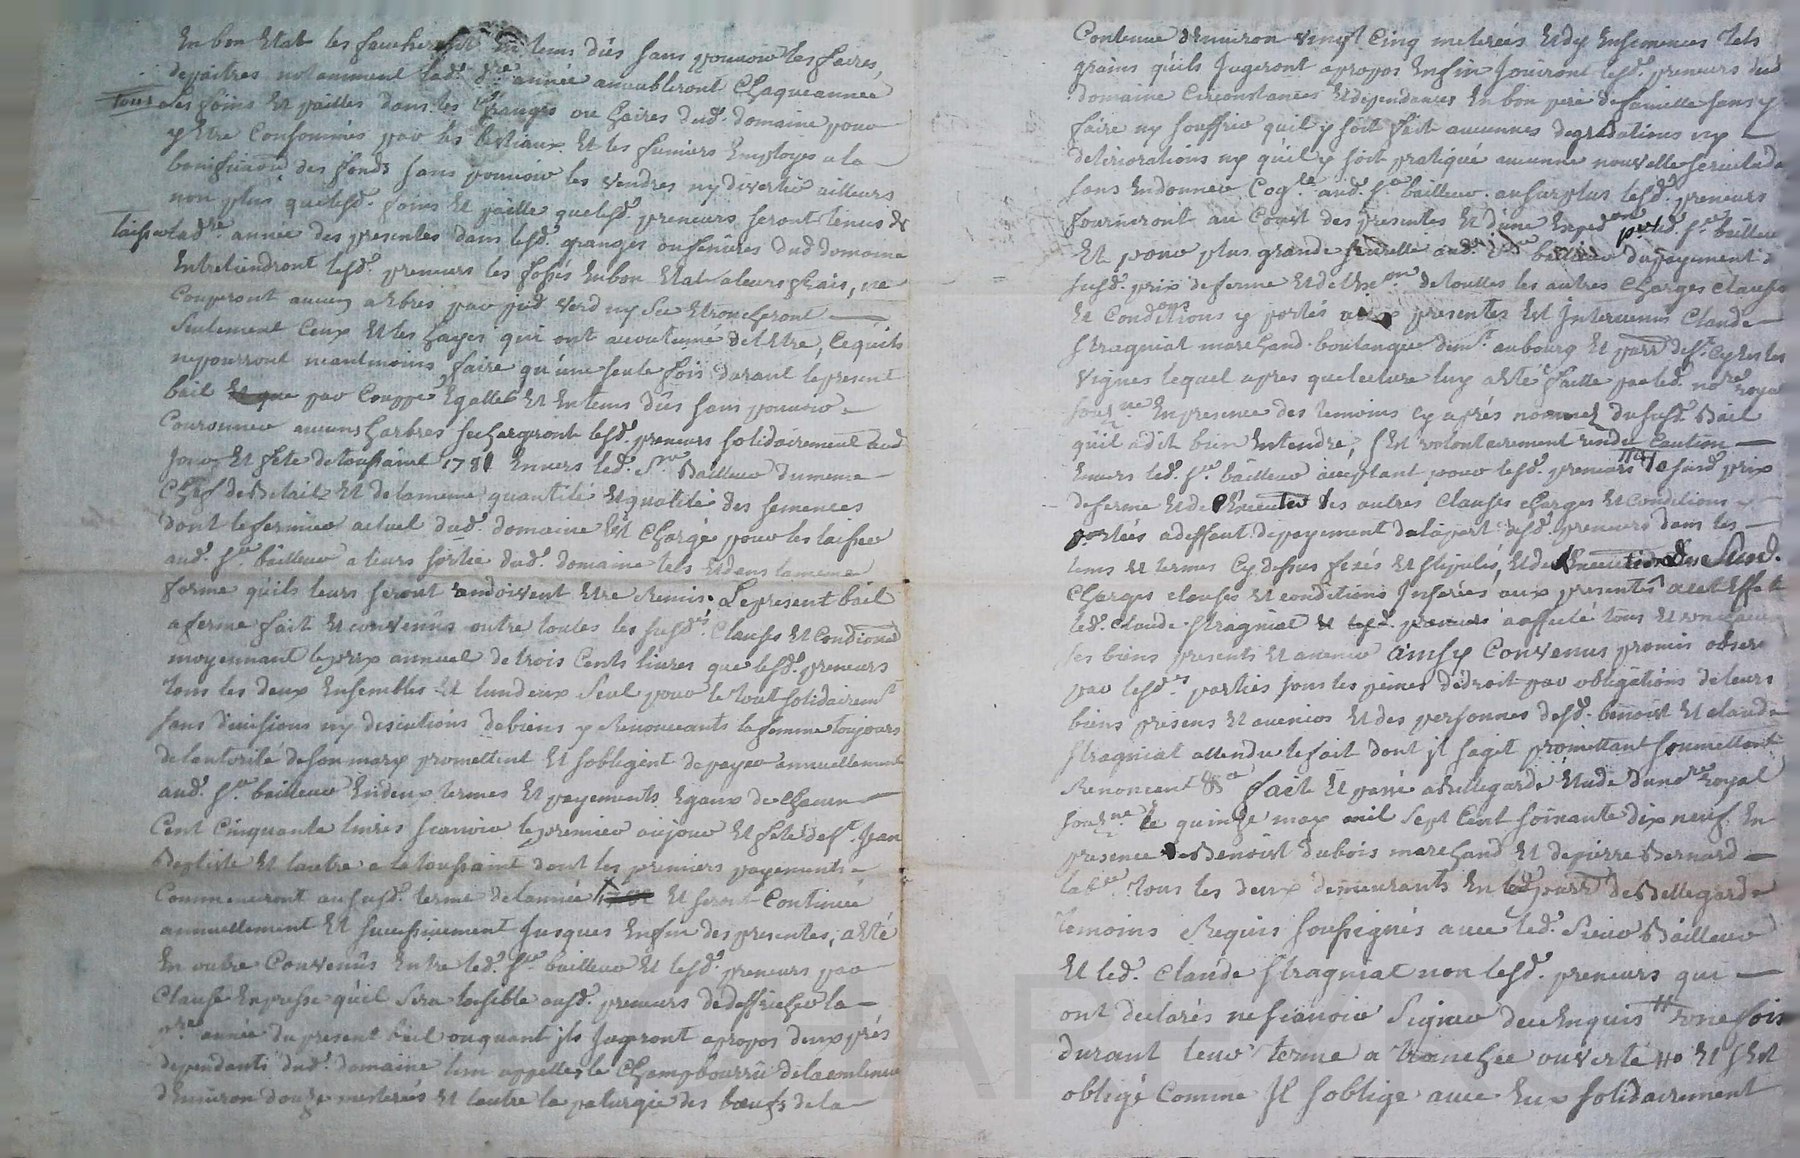 En bon Etat les faucheront En tems dûs sans pouvoir les faires
depaitres notamment lad. dre année annubleront Chaque année
tous les foins Et pailles dans les Granges ou haires dud. domaine pour
y Etre Consommés par les bestiaux Et les fumiers Employés a la
bonifica͠on des fonds sans pouvoir les vendres ny divertir ailleurs
non plus que lesd. foins Et paille que lesd. preneurs seront tenus de
laisser lad.re année des presentes dans lesd. granges ou fenières dud domaine
Entretiendront lesd. preneurs les fossés En bon Etat a leurs frais, ne
Couperont aucun arbres par pied verd ny sec Etroncheront
Seulement Ceux Et les hayes qui ont accoutumé de l'Etre, Ce quils
ne pourront neantmoins faire qu'une seule fois durant le present
bail par Couppe Egalles Et En tems dûs sans pouvoir
Couronner aucuns harbres se chargeront lesd. preneurs solidairement aud
Jour Et fete de toussaint 1781 Envers led. Sr. Bailleur du meme
Chef de Betail Et de la meme quantité Et qualité des semences
dont le fermier actuel dud. domaine Est Chargé pour les laisser
aud. Sr. bailleur a leurs sortie dud. domaine tels Et dans la meme
forme qu'ils leurs seront Remis. Le present bail
a ferme fait Et convenûs outre toutes les susd.es Clauses Et Conditions
moyennant le prix annuel de trois Cents livres que lesd. preneurs
tous les deux Ensembles Et lun deux Seul pour le tout solidairemt
sans divisions ny discutions de biens y Renonceants la femme toujours
de lautorité de son mary promettent Et sobligent de payer annuellement
aud. Sr. bailleur En deux termes Et payements Egaux de Chacun
Cent Cinquante livres sçavoir le premier au jour Et fete de St. Jean
Baptiste Et lautre a la toussaint dont les premiers payements
Commenceront au susd. terme de lannée Et seront Continué
annuellement Et successivement Jusques En fin des presentes, a Eté
En outre Convenûs Entre led. Sr. bailleur Et lesd. preneurs par
Clause Expresse qu'il sera loisible ausd. preneurs de deffricher la
pre année du present bail ou quant ils Jugeront apropos deux prés
dependants dud. domaine lun appellés le Champ bourru de la contenue
d'Environ douze mesterés Et lautre la paturage des bœufs de la
Contenue d'Environ vingt Cinq meterées Et dy Ensemences tels
grains qu'ils Jugeront apropos Enfin Jouiront lesd. preneurs dud
domaine Circonstances Et dependances En bon pere de famille sans y
faire ny souffrir quil y soit fait aucunnes degradations ny
deteriorations ny qu'il y soit pratiqué aucunne nouvelle servitude
sans En donner aud. Sr. bailleur. au surplus lesd. preneurs
fourniront au Cout des presentes Et d'une Exped.on aud. Sr. bailleur
Et pour plus grande seurette aud. Sr bailleur du payement du
susd. prix de ferme Et de l'Ex.on de touttes les autres Charges clauses
Et Conditions y portés aux presentes Est Intervenus Claude
Stragniat marchand boulanger demt. au bourg Et parr. de St. Cyr les
vignes lequel apres que lecture luy a Eté faitte par led. nore. royal
souz.ne En presence des temoins Cy aprés nommés du susd. Bail
qu'il a dit bien Entendre, sest volontairement rendu Caution
Envers led. Sr. bailleur acceptant pour lesd. preneurs susd prix
de ferme Et de les autres Clauses charges Et Conditions y
portées a deffaut de payement de la part desd. preneurs dans les
tems Et termes Cy dessus fixés Et stipulés, Et de susd.
Charges clauses Et conditions Inserées aux presentes a cet Effet
led. Claude Stragniat a affecté tous Et
ses biens presents Et avenir ainsy Convenus promis observ
par lesd.es parties sous les peines de droit par obligations de leurs
biens presens Et avenirs Et des personnes desd. benoist Et claude
Stragniat attendu le fait dont il sagit promettant soumettant
Renoncent &a. fait Et passé a Bellegarde Etude du nore. royal
souz.ne le quinze may mil sept Cent soixante dix neuf. En
presence de Benoist dubois marchand Et de pierre Bernard
lab.r tous les deux demeurants En lad parr. de Bellegarde
temoins Requis soussignés avec led. Sieur Bailleur
Et led. claude Stragniat non lesd. preneurs qui
ont declarés ne sçavoir Signer de ce Enquis # une fois
durant leur terme a tranchée ouverte # Et s'est
obligé Comme Il soblige avec Eux solidairement